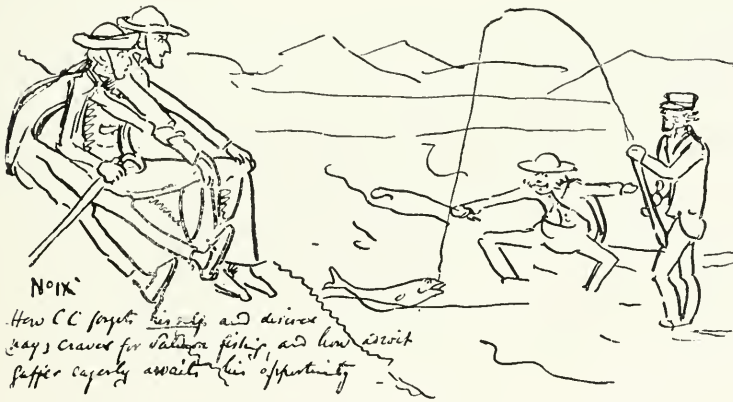 No IX
How CC forgets his and desires
nays craves for salmon fishing, and how adroit
gaffer eagerly awaits his opportunity